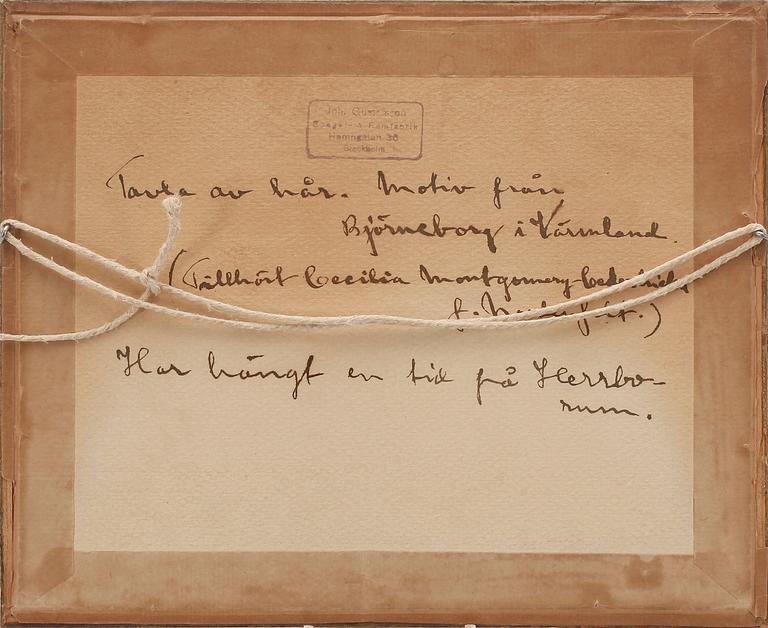 Joh. Gustafsson
Spegel- & Ramfabrik
Hamngatan 38
Stockholm
Tavla av hår. Motiv från
Björneborg i Värmland.
(Tillhört Cecilia Montgomery-Cederhielm
f.
Har hängt en tid på Herrbo-
rum.